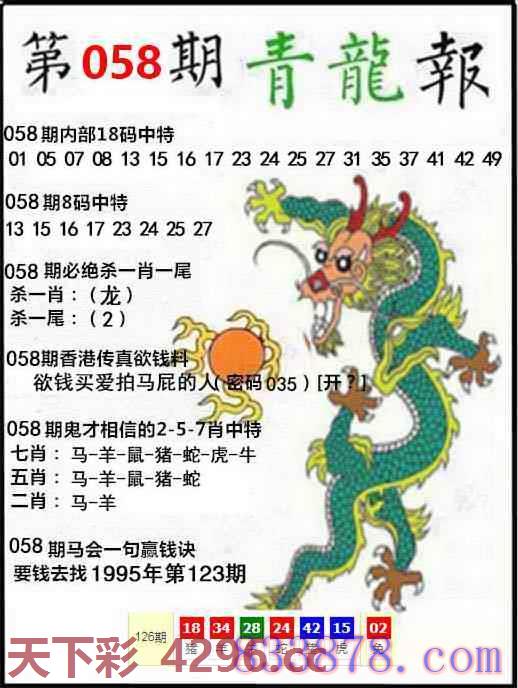 第058期青龍報
058期内部18码中特
01 05 07 08 13 15 16 17 23 24 25 27 31 35 37 41 42 49
058期8码中特
13 15 16 17 23 24 25 27
058期必绝杀一肖一尾
杀一肖：（龙）
杀一尾：（2）
058期香港传真欲钱料
欲钱买爱拍马屁的人(密码035)[开？]
058期鬼才相信的2-5-7肖中特
七肖：马-羊-鼠-猪-蛇-虎-牛
五肖：马-羊-鼠-猪-蛇
二肖：马-羊
058期马会一句赢钱诀
要钱去找1995年第123期
126期 18 34 28 24 42 15 02
猪 羊 蛇 猪 虎 兔
天下彩 4296.cc